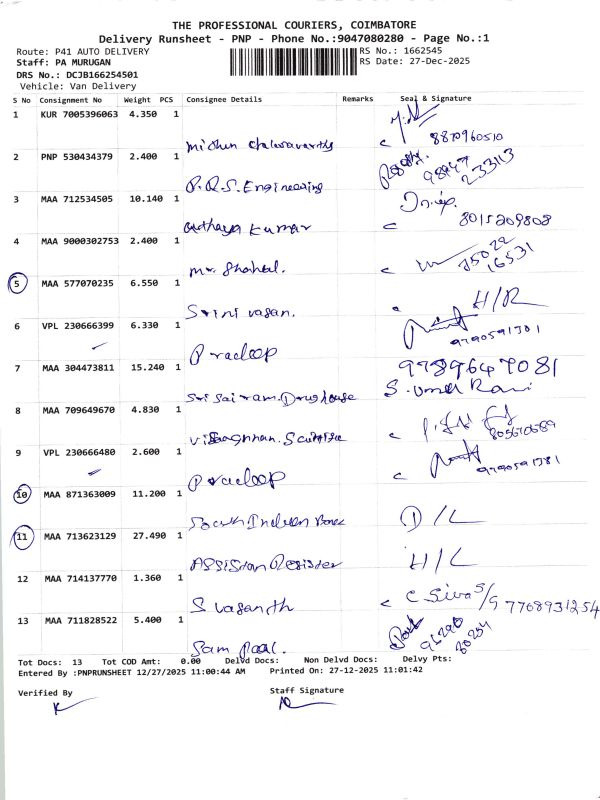 THE PROFESSIONAL COURIERS, COIMBATORE
Delivery Runsheet - PNP - Phone No.:9047080280 - Page No.:1
Route: P41 AUTO DELIVERY RS No.: 1662545
Staff: PA MURUGAN RS Date: 27-Dec-2025
DRS No.: DCJB166254501
Vehicle: Van Delivery
S No Consignment No Weight PCS Consignee Details Remarks Seal & Signature
1 KUR 7005396063 4.350 1
Midhun Chakravarthy 8870960510
2 PNP 530434379 2.400 1
P.R.S. Engineering 98947 233113
3 MAA 712534505 10.140 1
Udhaya Kumar 8015209808
4 MAA 9000302753 2.400 1
Mr. Shahal. 75022 16531
5 MAA 577070235 6.550 1
Srinivasan. H/R
6 VPL 230666399 6.330 1
Pradeep 9790591381
7 MAA 304473811 15.240 1 9789647081
Sri Sairam Drug house S. Uma Rani
8 MAA 709649670 4.830 1
9 VPL 230666480 2.600 1
Pradeep 9790591381
10 MAA 871363009 11.200 1
South Indian Bank D/L
11 MAA 713623129 27.490 1
Assistan Register H/L
12 MAA 714137770 1.360 1
S vasanth C Siva S/G 7708931254
13 MAA 711828522 5.400 1
Sam Paal. 96290 80254
Tot Docs: 13 Tot COD Amt: 0.00 Delvd Docs: Non Delvd Docs: Delvy Pts:
Entered By :PNPRUNSHEET 12/27/2025 11:00:44 AM Printed On: 27-12-2025 11:01:42
Verified By Staff Signature